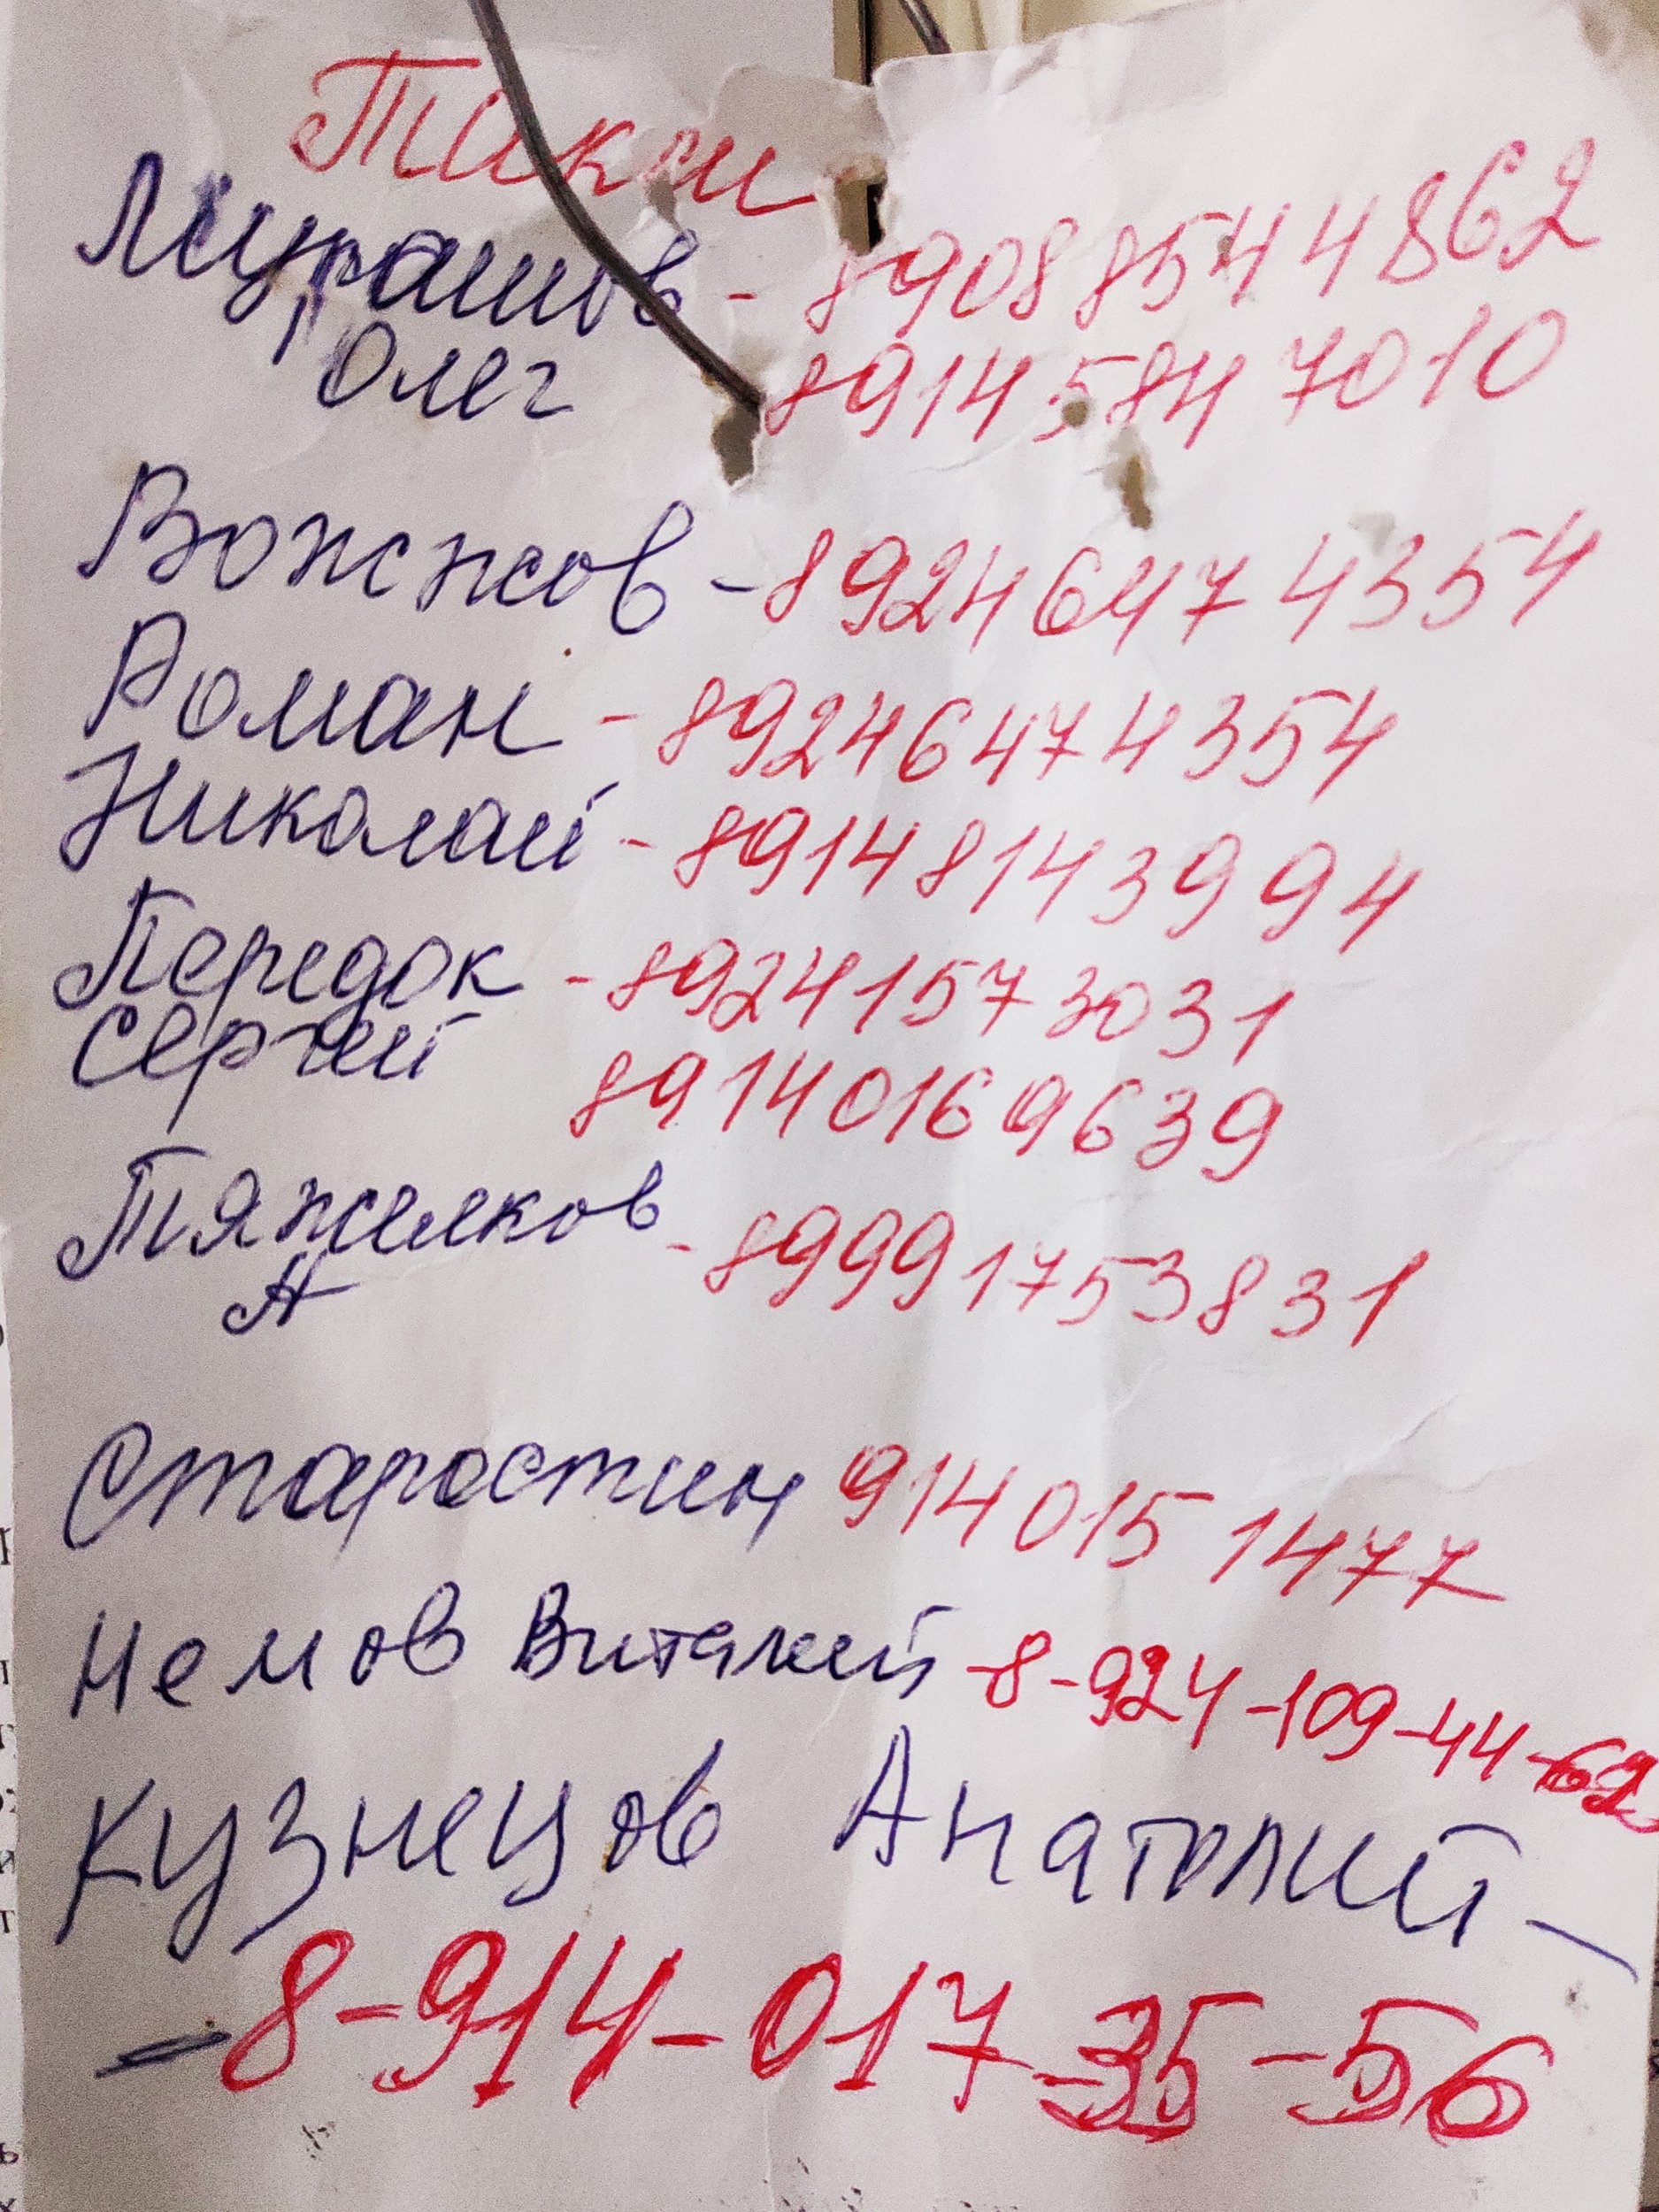 Такси
Мурашов - 89088544862
Олег 89145847010
Вожжов - 89246474354
Роман - 89246474354
Николай - 89148143994
Передок - 89241573031
Сергей
89140169639
Тяжелков - 89991753831
А
Старостин 9140151477
Немов Виталий -8-924-109-44-62
Кузнецов Анатолий -
- 8-914-017-35-56